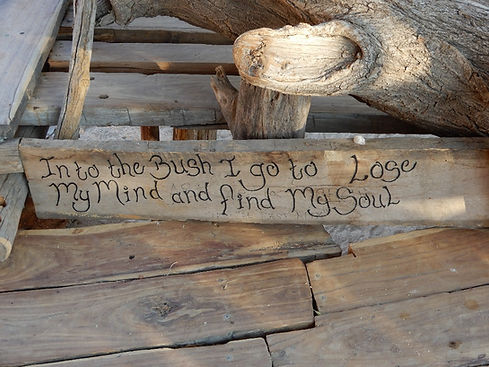 Into the Bush I go to Lose
My Mind and find My Soul